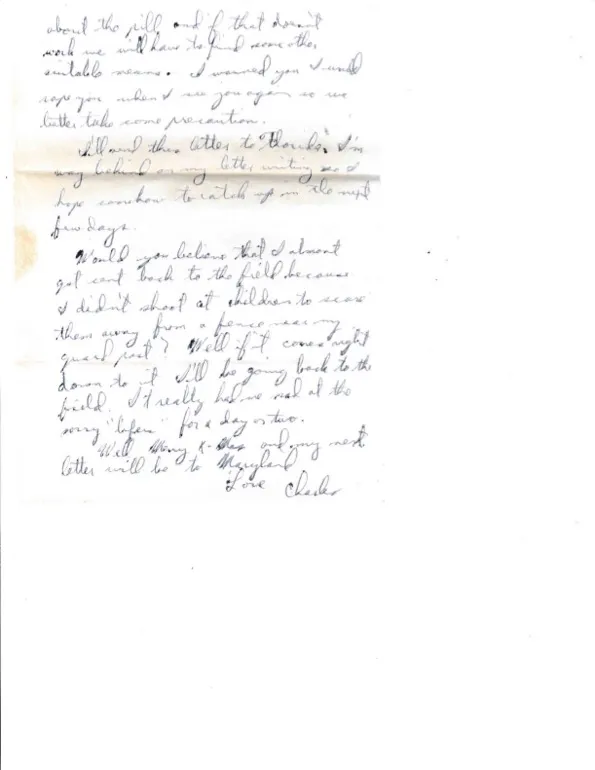 about the pill and if that doesn't
work we will have to find some other
suitable means. I warned you I would
rape you when I see you again so we
better take some precaution.
I'll send this letter to I'm
way behind on my letter writing so I
hope somehow to catch up in the next
few days.
Would you believe that I almost
got sent back to the field because
I didn't shoot at children to scare
them away from a fence near my
guard post? Well if it comes right
down to it I'll be going back to the
field. It really had me mad at the
sorry "lifers" for a day or two.
Well Merry X-Mas and my next
letter will be to Maryland
Love Charles